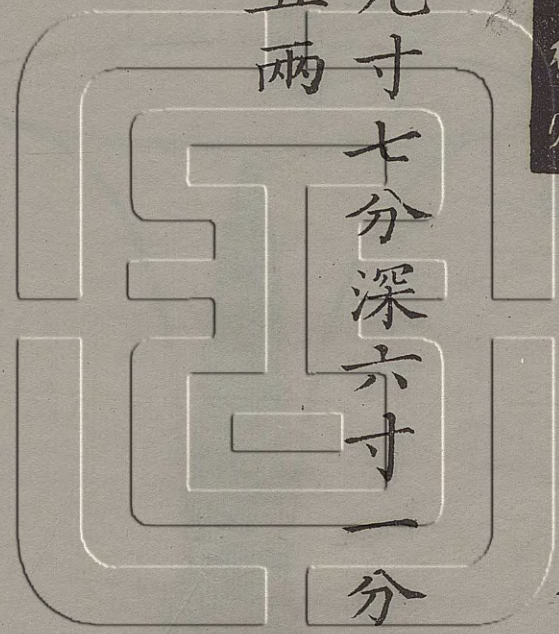 寸七分深六寸一分
兩